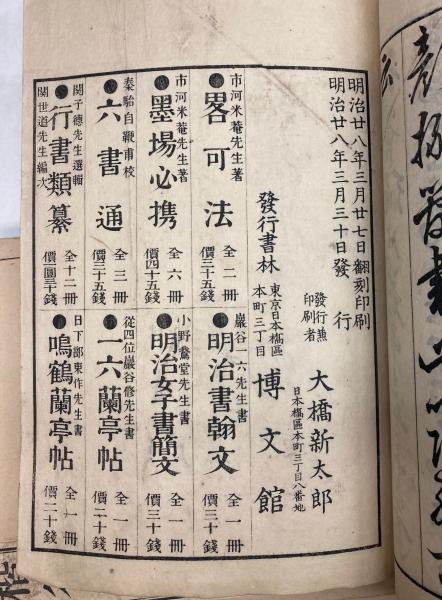 明治廿八年三月廿七日翻刻印刷
明治廿八年三月三十日發行
發行兼
印刷者
大橋新太郎
日本橋區本町三丁目八番地
發行書林
東京日本橋區
本町三丁目
博文館
市河米菴先生著
●畧可法
全二冊
價三十五錢
巖谷一六先生書
●明治書翰文
全一冊
價三十錢
市河米菴先生著
●墨場必携
全六冊
價四十五錢
小野鵞堂先生書
●明治女子書簡文
全一冊
價三十錢
秦駘自鞭甫校
●六書通
全三冊
價三十五錢
從四位巖谷修先生書
●一六蘭亭帖
全一冊
價二十錢
關子德先生選輯
●行書類纂
關世道先生編次
全十二冊
價圓三十錢
日下部東作先生書
●鳴鶴蘭亭帖
全一冊
價二十錢